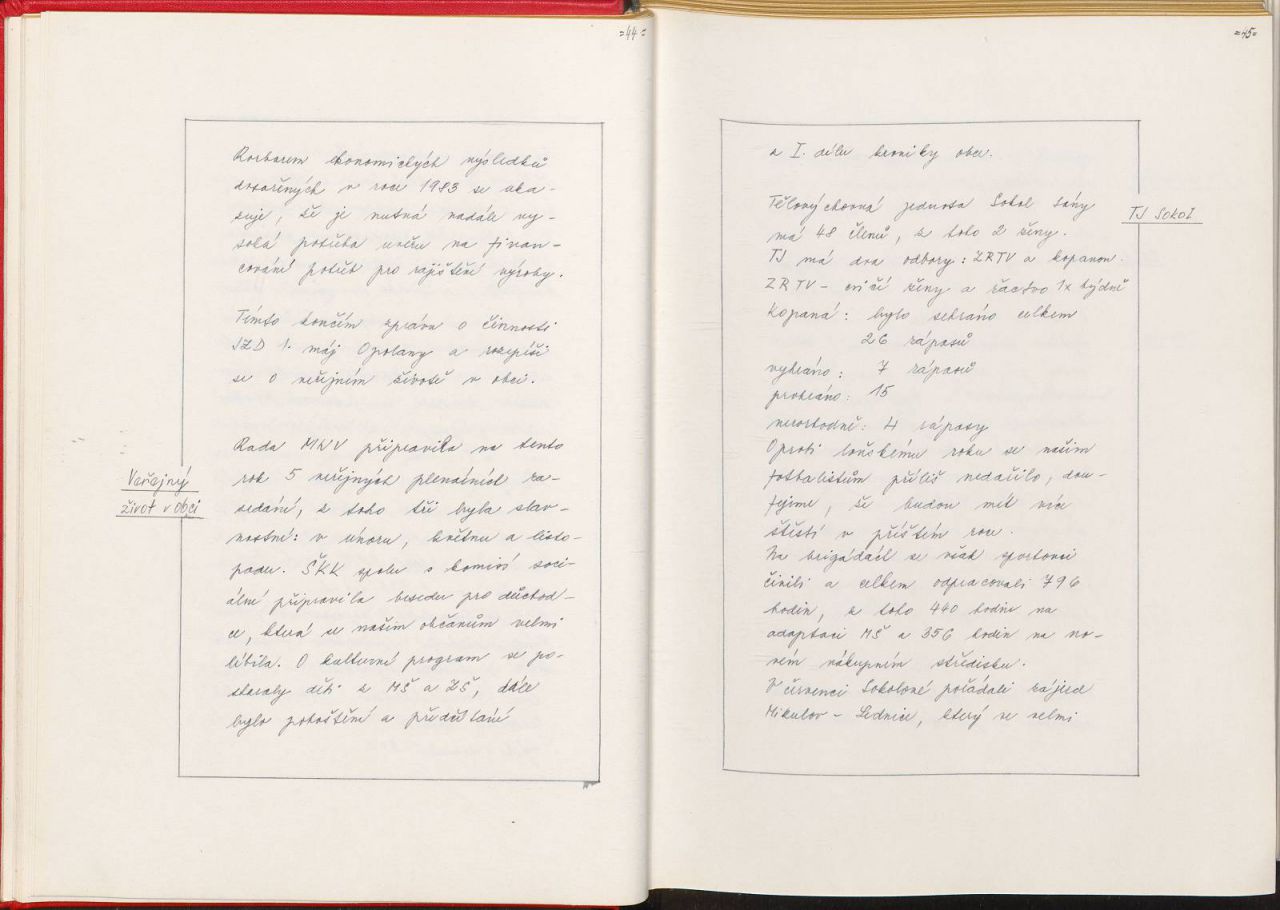 =44=
Rozborem ekonomických výsledků
dosažených v roce 1983 se uka-
zuje, že je nutná nadále vy-
soká potřeba úvěru na finan-
cování potřeb pro zajištění výroby.
Tímto končím zprávu o činnosti
JZD 1. máj Opolany a rozepíši
se o veřejném životě v obci.
Veřejný
život v obci
Rada MNV připravila na tento
rok 5 veřejných plenárních za-
sedání, z toho tři byla slav-
nostní: v únoru, květnu a listo-
padu. ŠKK spolu s komisí soci-
ální připravila besedu pro důchod-
ce, která se našim občanům velmi
líbila. O kulturní program se po-
staraly děti z MŠ a ZŠ, dále
bylo pohoštění a předčítání
=45=
z I. dílu kroniky obce.
TJ Sokol
Tělovýchovná jednota Sokol Sány
má 48 členů, z toho 2 ženy.
TJ má dva odbory: ZRTV a kopanou.
ZRTV - cvičí ženy a žactvo 1x týdně
Kopaná: bylo sehráno celkem
26 zápasů
vyhráno: 7 zápasů
prohráno: 15
nerozhodně: 4 zápasy
Oproti loňskému roku se našim
fotbalistům příliš nedařilo, dou-
fejme, že budou mít více
štěstí v příštím roce.
Na brigádách se však sportovci
činili a celkem odpracovali 796
hodin, z toho 440 hodin na
adaptaci MŠ a 356 hodin na no-
vém nákupním středisku.
V červenci Sokolové pořádali zájezd
Mikulov - Lednice, který se velmi